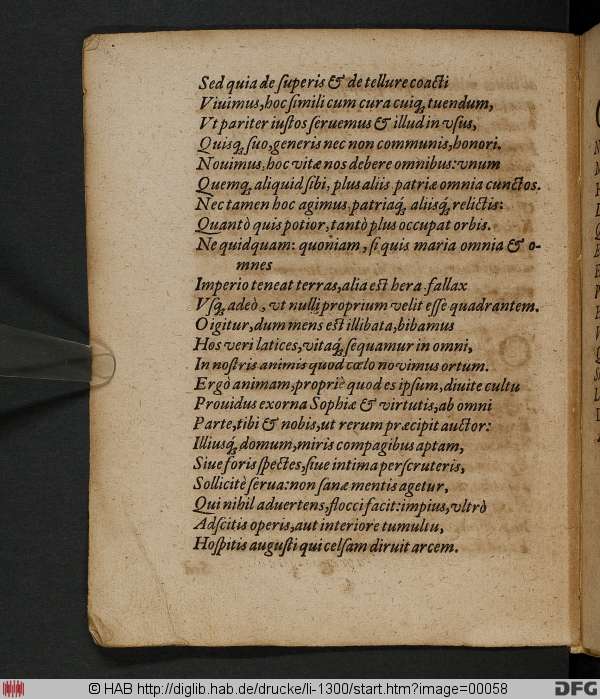 Sed quia de ſuperis & de tellure coacti
Viuimus, hoc ſimili cum cura cuiq́; tuendum,
Vt pariter iuſtos ſeruemus & illud in vſus,
Quisq́; ſuo, generis nec non communis, honori.
Nouimus, hoc vitæ nos debere omnibus: vnum
Quemq́; aliquid ſibi, plus aliis patriæ omnia cunctos.
Nec tamen hoc agimus patriaq́; aliisq́; relictis:
Quantò quis potior, tantò plus occupat orbis.
Ne quidquam: quoniam, ſi quis maria omnia & o-
mnes
Imperio teneat terras, alia eſt hera fallax
Vſq́; adeò, vt nulli proprium velit eſſe quadrantem.
O igitur, dum mens eſt illibata, bibamus
Hos veri latices, vitaq́; ſequamur in omni,
In noſtris animis quod cœlo nouimus ortum.
Ergò animam, propriè quod es ipſum, diuite cultu
Prouidus exorna Sophiæ & virtutis, ab omni
Parte, tibi & nobis, ut rerum præcipit auctor:
Illiusq́; domum, miris compagibus aptam,
Siue foris ſpectes, ſiue intima perſcruteris,
Sollicitè ſerua: non ſanæ mentis agetur,
Qui nihil aduertens, flocci facit: impius, vltrò
Adſcitis operis, aut interiore tumultu,
Hoſpitis auguſti qui celſam diruit arcem.
© HAB http://diglib.hab.de/drucke/li-1300/start.htm?image=00058
DFG